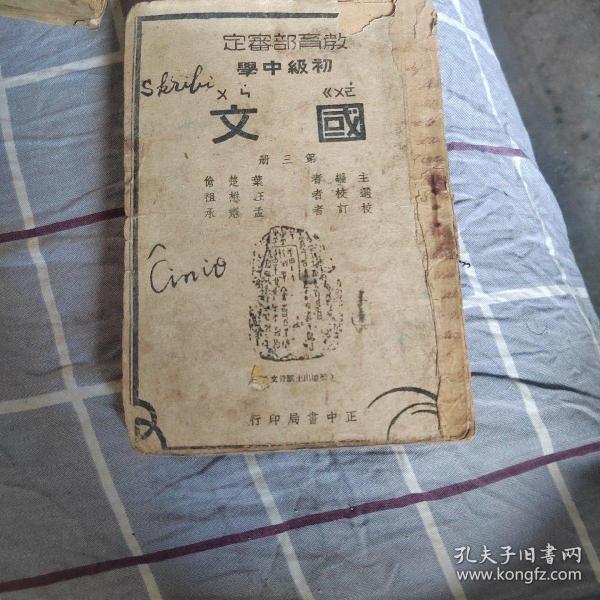 教育部審定
初級中學
Skribi
ㄍㄨㄛˊ ㄨㄣˊ
國文
第三冊
主編者 葉楚傖
選校者 汪懋祖
校訂者 孟憲承
Ĉinio
正中書局印行
孔夫子旧书网
www.kongfz.com